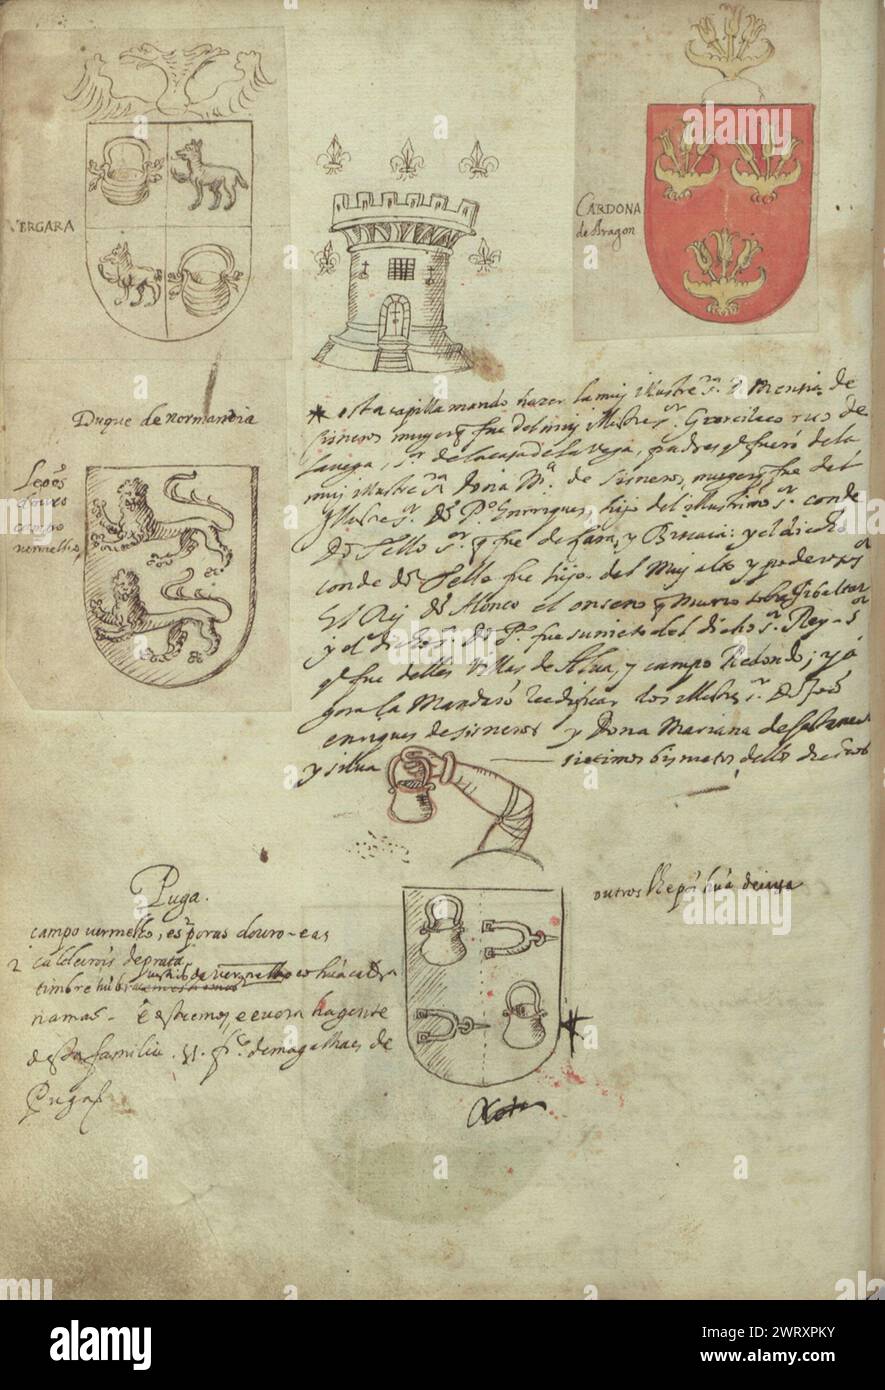 BERGARA
CARDONA
de Aragon
Duque de normandia
Lepõs
douro
campo
vermelho
* esta capilla mando hazer la muy illustre Sra D. Mentia de
sisneros muger q fue del muy Illustre Sr. Garcilaco ruis de
la vega, Sr. de la casa de la Vega, padres q fuerõ de la
muy illustre Sra Dona Ma. de sisneros, muger q fue del
Illustre Sr. Dõ Po. Enrriques, hijo del illustrimo Sr. conde
Dõ Tello Sr. q fue de y y el dicho
conde Dõ Tello fue hijo del Muy alto y poderoso Sr
El Rej Dõ Alonco el onseno q murio sobre Gibaltar
y el dicho Sr. Dõ Po. fue su nieto del dicho Sr. Rey - Sr
q fue de las Villas de Alua, y campo Redondo; y a
gora la Mandarõ los illustres Sr. Dõ
enrriques de sisneros y Dona Mariana de
y silua — setimos bisnetos dellos dichos
Puga.
campo vermelho, esporas douro - e as
2 caldeirõs de prata
timbre hũ vestido de vermelho co hũa caldra
na mão - E estremos, e euora ha gente
desta familia. frco. de magalhaes de
Puga
outros lhe põe hũa
alamy
Image ID: 2WRXPKY
www.alamy.com